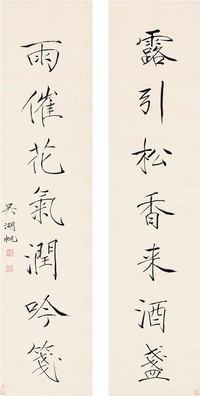 露引松香来酒盞
雨催花氣潤吟箋
吳湖帆